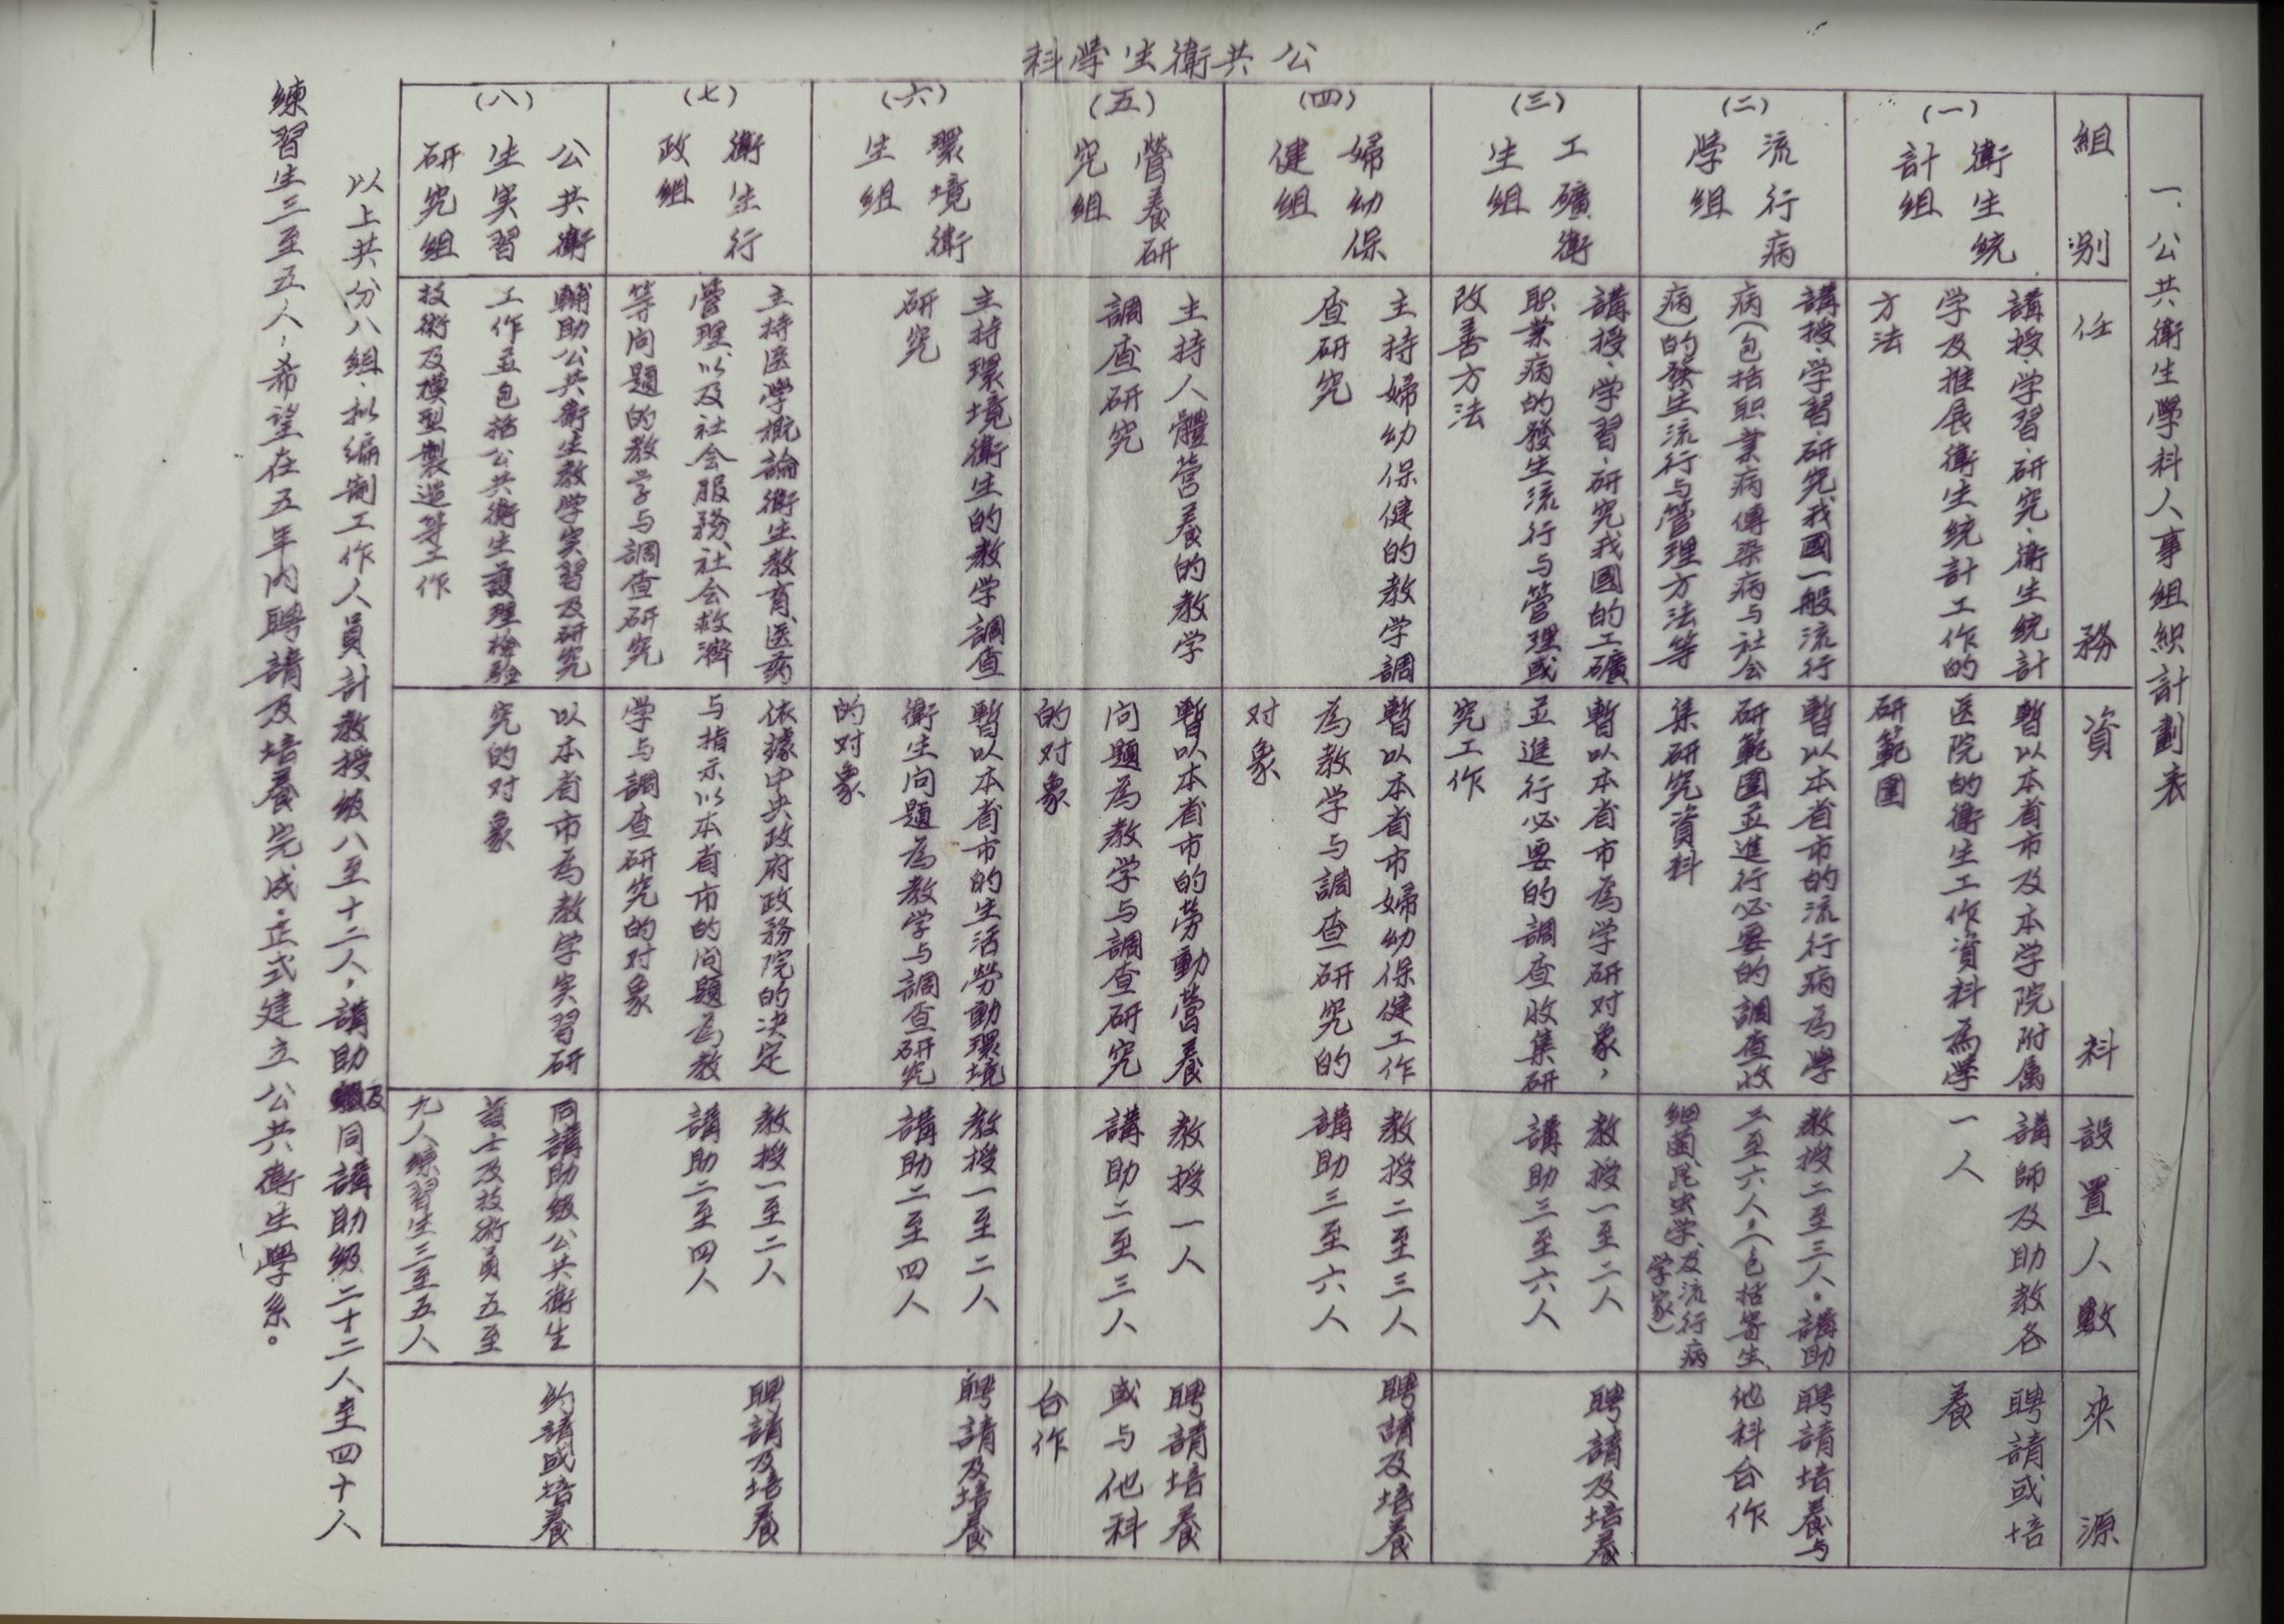 公共衛生學科
一、公共衛生學科人事組織計劃表
組別
任務
資料
設置人數
來源
(一)
衛生統
計組
講授、学習、研究、衛生統計
学及推展衛生統計工作的
方法
暫以本省市及本学院附属
医院的衛生工作資料為學
研範圍
講師及助教各
一人
聘請或培
養
(二)
流行病
学組
講授、学習、研究我國一般流行
病(包括职業病傳染病与社会
病)的發生流行与管理方法等
暫以本省市的流行病為學
研範圍並進行必要的調查收
集研究資料
教授二至三人。講助
三至六人,(包括寄生、
細菌、昆虫学、及流行病
学家)
聘請培養与
他科合作
(三)
工礦衛
生組
講授、学習、研究我國的工礦
职業病的發生流行与管理或
改善方法
暫以本省市為学研对象,
並進行必要的調查收集研
究工作
教授一至二人
講助三至六人
聘請及培養
(四)
婦幼保
健組
主持婦幼保健的教学調
查研究
暫以本省市婦幼保健工作
為教学与調查研究的
对象
教授二至三人
講助三至六人
聘請及培養
(五)
營養研
究組
主持人體营養的教学
調查研究
暫以本省市的勞動營養
问題為教学与調查研究
的对象
教授一人
講助二至三人
聘請培養
或与他科
合作
(六)
環境衛
生組
主持環境衛生的教学調查
研究
暫以本省市的生活勞動環境
衛生问題為教学与調查研究
的对象
教授一至二人
講助二至四人
聘請及培養
(七)
衛生行
政組
主持医學概論衛生教育、医葯
管理以及社会服務、社会救濟
等问題的教学与調查研究
依據中央政府政務院的决定
与指示以本省市的问題為教
学与調查研究的对象
教授一至二人
講助二至四人
聘請及培養
(八)
公共衛
生实習
研究組
輔助公共衛生教学实習及研究
工作並包括公共衛生護理檢驗
技術及模型製造等工作
以本省市為教学实習研
究的对象
同講助級公共衛生
護士及技術員五至
九人練習生三至五人
約請或培養
以上共分八組、拟編制工作人員計教授級八至十二人,講助及同講助級二十二人至四十人
練習生三至五人,希望在五年内聘請及培養完成.正式建立公共衛生學系。